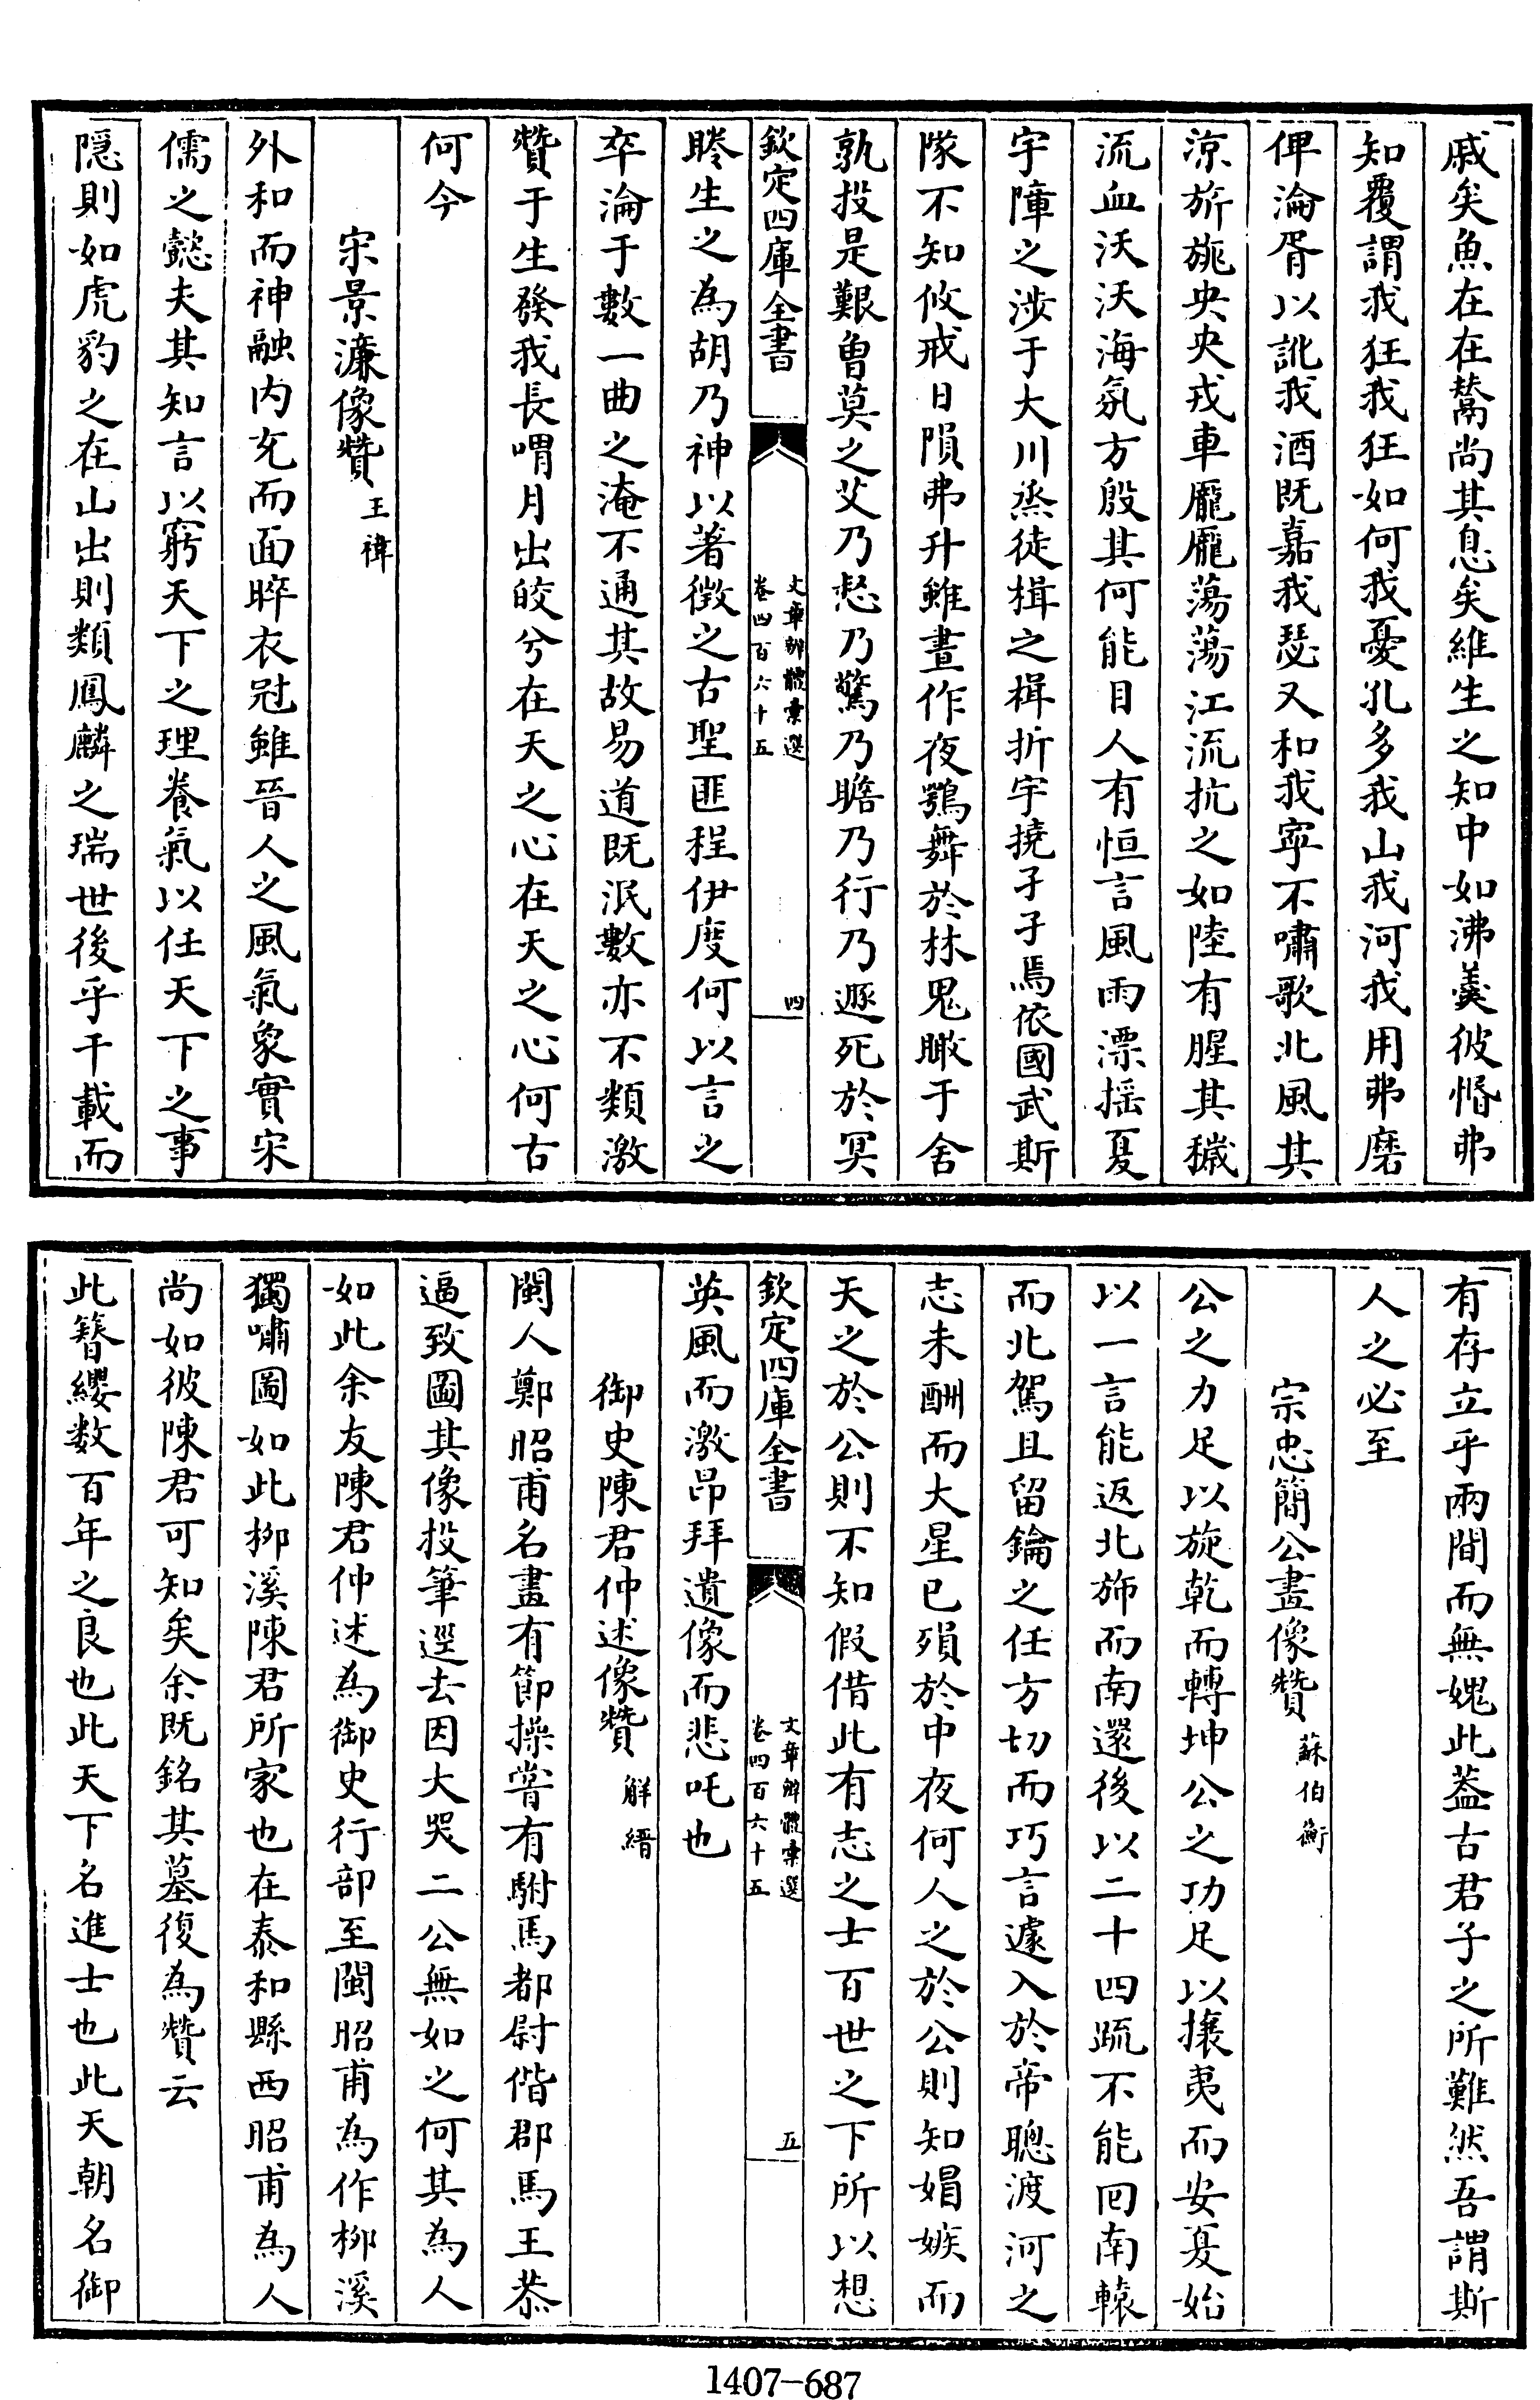 戚矣魚在在鬵尚其息矣維生之知中如沸羹彼惽弗
知覆謂我狂我狂如何我憂孔多我山我河我用弗磨
俾淪胥以訛我酒既嘉我瑟又和我寧不嘯歌北風其
涼旂旐央央戎車龐龐蕩蕩江流抗之如陸有腥其穢
流血沃沃海氛方殷其何能目人有恒言風雨漂揺夏
宇障之涉于大川烝徒楫之楫折宇撓孑孑焉依國武斯
隊不知攸戒日隕弗升雖晝作夜鶚舞於林鬼瞰于舍
孰投是艱曽莫之艾乃愁乃驚乃瞻乃行乃遯死於冥
欽定四庫全書
文章辨體彙選
卷四百六十五
四
瞻生之為胡乃神以著徴之古聖匪程伊度何以言之
卒淪于數一曲之淹不通其故易道既泯數亦不類激
贊于生發我長喟月出皎兮在天之心在天之心何古
何今
宋景濂像贊 王禕
外和而神融内充而面睟衣冠雖晉人之風氣象實宋
儒之懿夫其知言以窮天下之理養氣以任天下之事
隠則如虎豹之在山出則類鳳麟之瑞世後乎千載而
有存立乎兩間而無媿此葢古君子之所難然吾謂斯
人之必至
宗忠簡公畫像贊 蘇伯衡
公之力足以旋乾而轉坤公之功足以攘夷而安夏始
以一言能返北斾而南還後以二十四疏不能囘南轅
而北駕且留鑰之任方切而巧言遽入於帝聰渡河之
志未酬而大星已殞於中夜何人之於公則知娼嫉而
天之於公則不知假借此有志之士百世之下所以想
欽定四庫全書
文章辨體彙選
卷四百六十五
五
英風而激昂拜遺像而悲吒也
御史陳君仲述像贊 解縉
閩人鄭昭甫名畫有節操嘗有駙馬都尉偕郡馬王恭
逼致圖其像投筆逕去因大哭二公無如之何其為人
如此余友陳君仲述為御史行部至閩昭甫為作栁溪
獨嘯圖如此栁溪陳君所家也在泰和縣西昭甫為人
尚如彼陳君可知矣余既銘其墓復為贊云
此簪纓数百年之良也此天下名進士也此天朝名御
1407-687